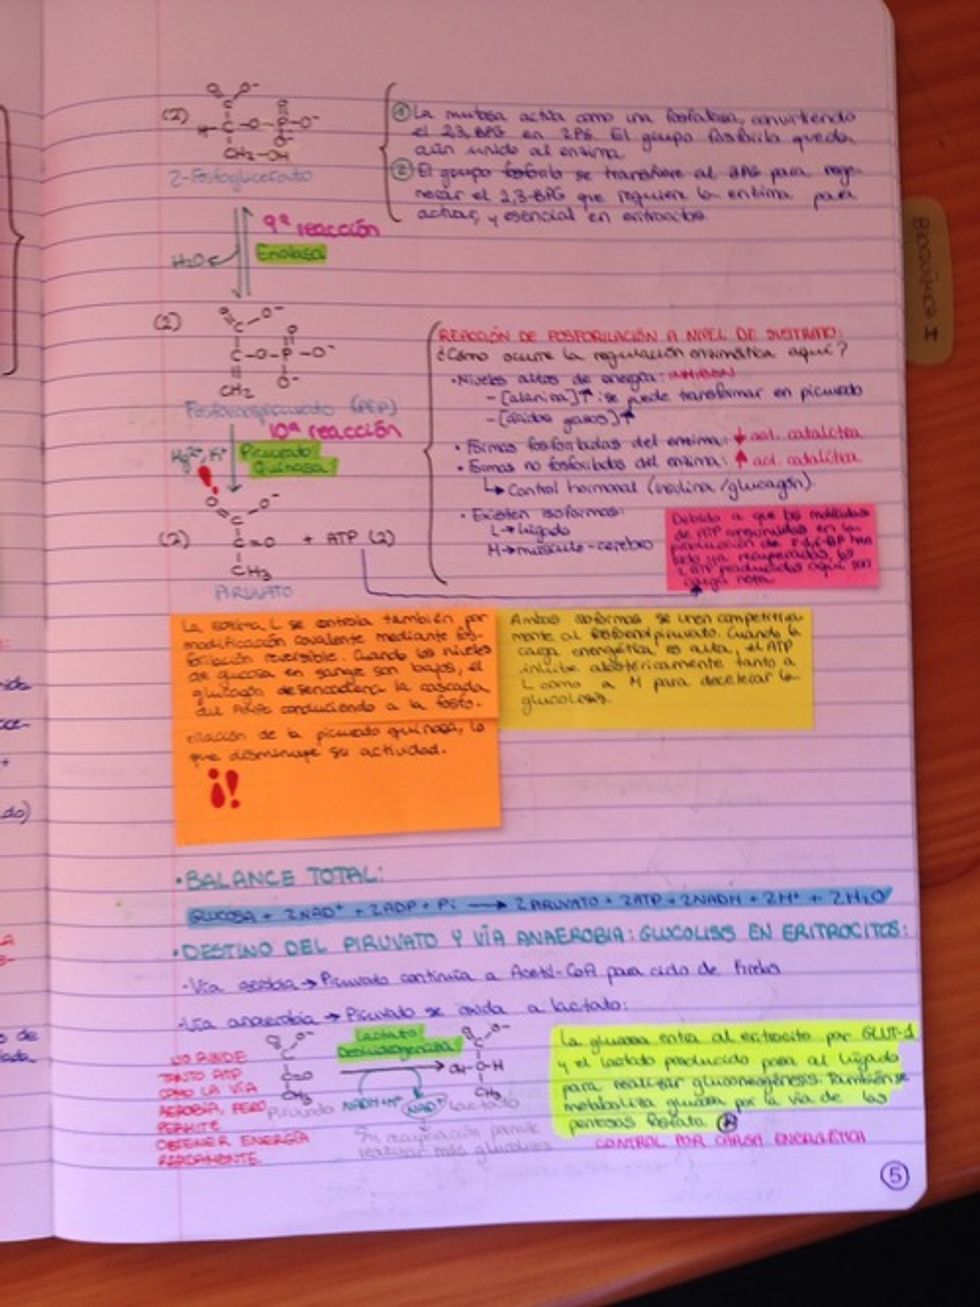 (2)
2-Fosfoglicerato
① La mutasa actúa como una fosfatasa, convirtiendo
el 2,3-BPG en 2PG. El grupo fosforilo queda
aún unido al enzima.
② El grupo fosforilo se transfiere al 3PG para rege-
nerar el 2,3-BPG que requiere la enzima para
actuar, y esencial en eritrocitos.
9ª reacción
Enolasa
H₂O
(2)
Fosfoenolpiruvato (PEP)
10ª reacción
Mg²⁺, K⁺
Piruvato
Quinasa
(2)
+ ATP (2)
PIRUVATO
REACCIÓN DE FOSFORILACIÓN A NIVEL DE SUSTRATO:
¿Cómo ocurre la regulación enzimática aquí?
• Niveles altos de energía: INHIBEN
- [alanina]↑: se puede transformar en piruvato
- [ácidos grasos]↑
• Formas fosforiladas del enzima: ↓ act. catalítica
• Formas no fosforiladas del enzima: ↑ act. catalítica
↳ Control hormonal (insulina/glucagón).
• Existen isoformas:
L → hígado
M → músculo-cerebro
Debido a que las moléculas
de ATP
producción de
sido ya recuperadas, los
2 ATP producidos aquí son
La enzima L se controla también por
modificación covalente mediante fos-
forilación reversible. Cuando los niveles
de glucosa en sangre son bajos, el
glucagón desencadena la cascada
del AMPc conduciendo a la fosfo-
rilación de la piruvato quinasa, lo
que disminuye su actividad.
¡!
Ambas isoformas se unen competitiva
mente al fosfoenolpiruvato. Cuando la
carga energética es alta, el ATP
inhibe alostéricamente tanto a
L como a M para decelerar la
glucolisis.
• BALANCE TOTAL:
GLUCOSA + 2NAD⁺ + 2ADP + Pi → 2 PIRUVATO + 2ATP + 2NADH + 2H⁺ + 2H₂O
• DESTINO DEL PIRUVATO Y VÍA ANAEROBIA: GLUCOLISIS EN ERITROCITOS:
- Vía aerobia → Piruvato continúa a Acetil-CoA para ciclo de Krebs
- Vía anaerobia → Piruvato se oxida a lactato:
NO RINDE
TANTO ATP
COMO LA VÍA
AEROBIA, PERO
PERMITE
OBTENER ENERGÍA
RÁPIDAMENTE.
Lactato
Deshidrogenasa
Piruvato
NADH+H⁺
NAD⁺
Lactato
Su recuperación permite
realizar más glucolisis
La glucosa entra al eritrocito por GLUT-1
y el lactato producido pasa al hígado
para realizar gluconeogénesis. También se
metaboliza glucosa por la vía de las
pentosas fosfato.
CONTROL POR CARGA ENERGÉTICA
5
Bioquímica I